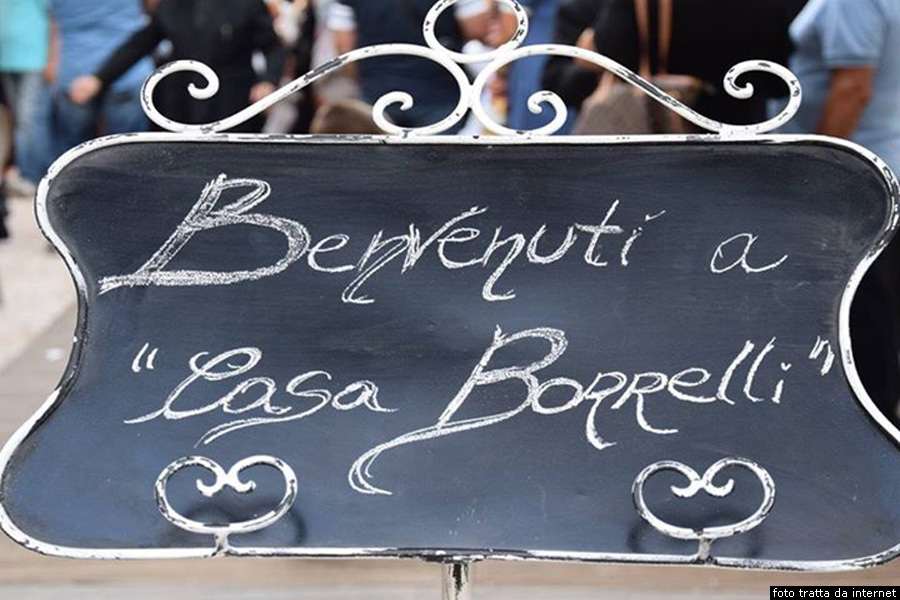 Benvenuti a
“Casa Borrelli”
foto tratta da internet